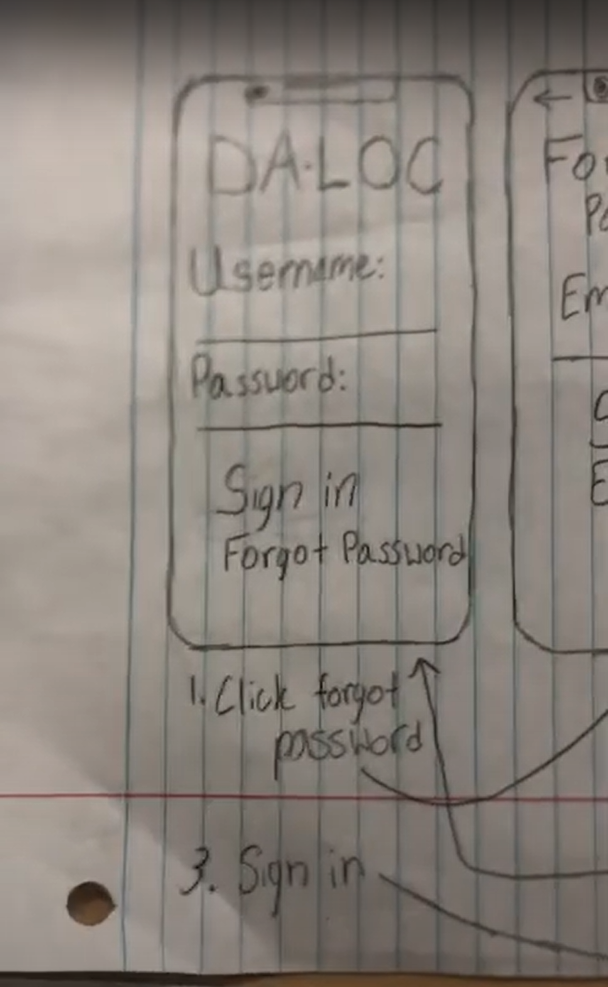 DA·LOC
Username:
Password:
Sign in
Forgot Password
1. Click forgot
password
3. Sign in
Fo
Em